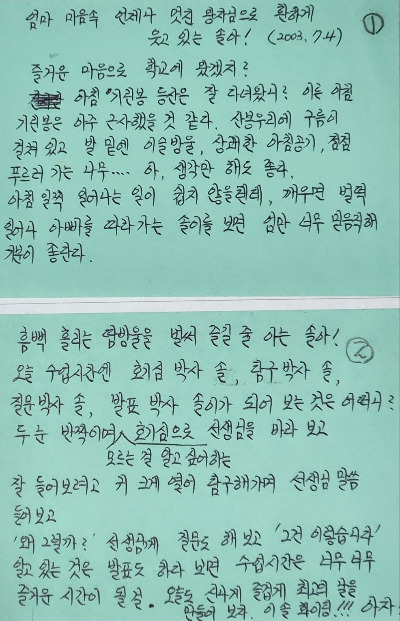 엄마 마음속 언제나 멋진 왕자님으로 환하게
웃고 있는 솔아! (2003. 7.4)
①
즐거운 마음으로 학교에 왔겠지?
아침 기린봉 등산은 잘 다녀왔니? 이른 아침
기린봉은 아주 근사했을 것 같다. 산봉우리에 구름이
걸쳐 있고 발 밑엔 이슬방울, 상쾌한 아침공기, 점점
푸르러 가는 나무.... 아, 생각만 해도 좋다.
아침 일찍 일어나는 일이 쉽지 않을텐데, 깨우면 벌떡
일어나 아빠를 따라가는 솔이를 보면 엄만 너무 믿음직해
기분이 좋단다.
흠뻑 흘리는 땀방울을 벌써 즐길 줄 아는 솔아!
②
오늘 수업시간엔 호기심 박사 솔, 탐구박사 솔,
질문박사 솔, 발표 박사 솔이가 되어 보는 것은 어떠니?
두 눈 반짝이며 호기심으로 선생님을 바라 보고
모르는 걸 알고 싶어하는
잘 들어보려고 귀 크게 열어 탐구해가며 선생님 말씀
들어보고
'왜 그럴까?' 선생님께 질문도 해 보고 '그건 이렇습니다'
알고 있는 것은 발표도 하다 보면 수업시간은 너무너무
즐거운 시간이 될 걸. 오늘도 신나게 즐겁게 최고의 날을
만들어 보자. 이솔 화이팅!!! 아자